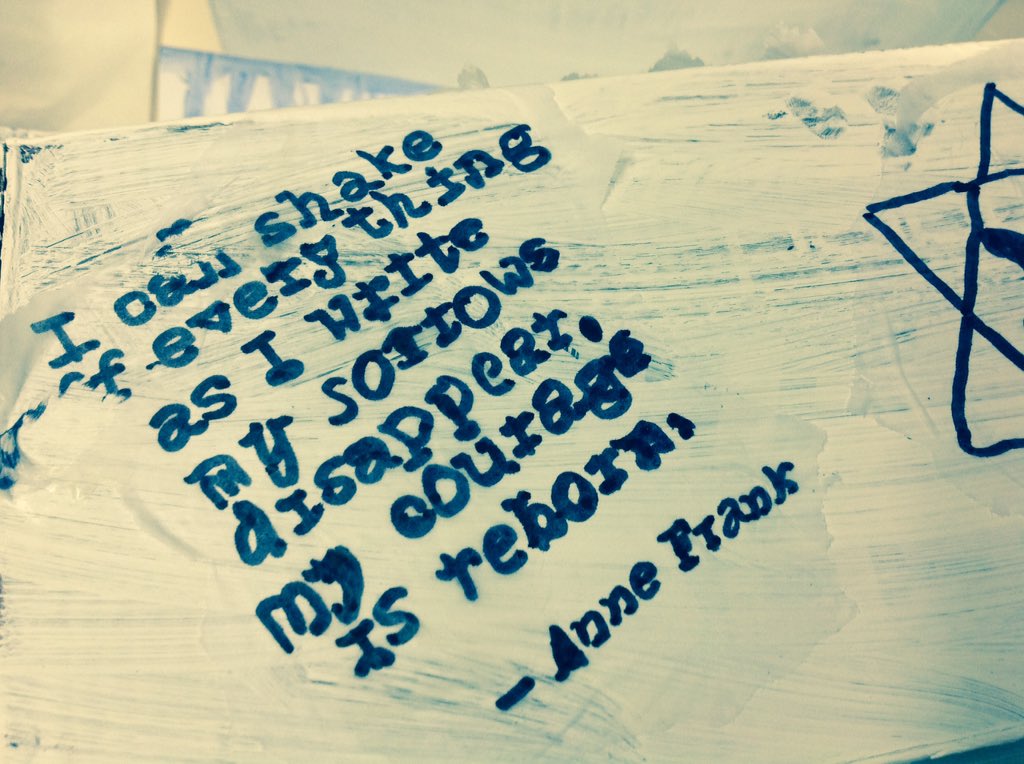 I can shake
off everything
as I write
my sorrows
disappear,
my courage
is reborn.
- Anne Frank